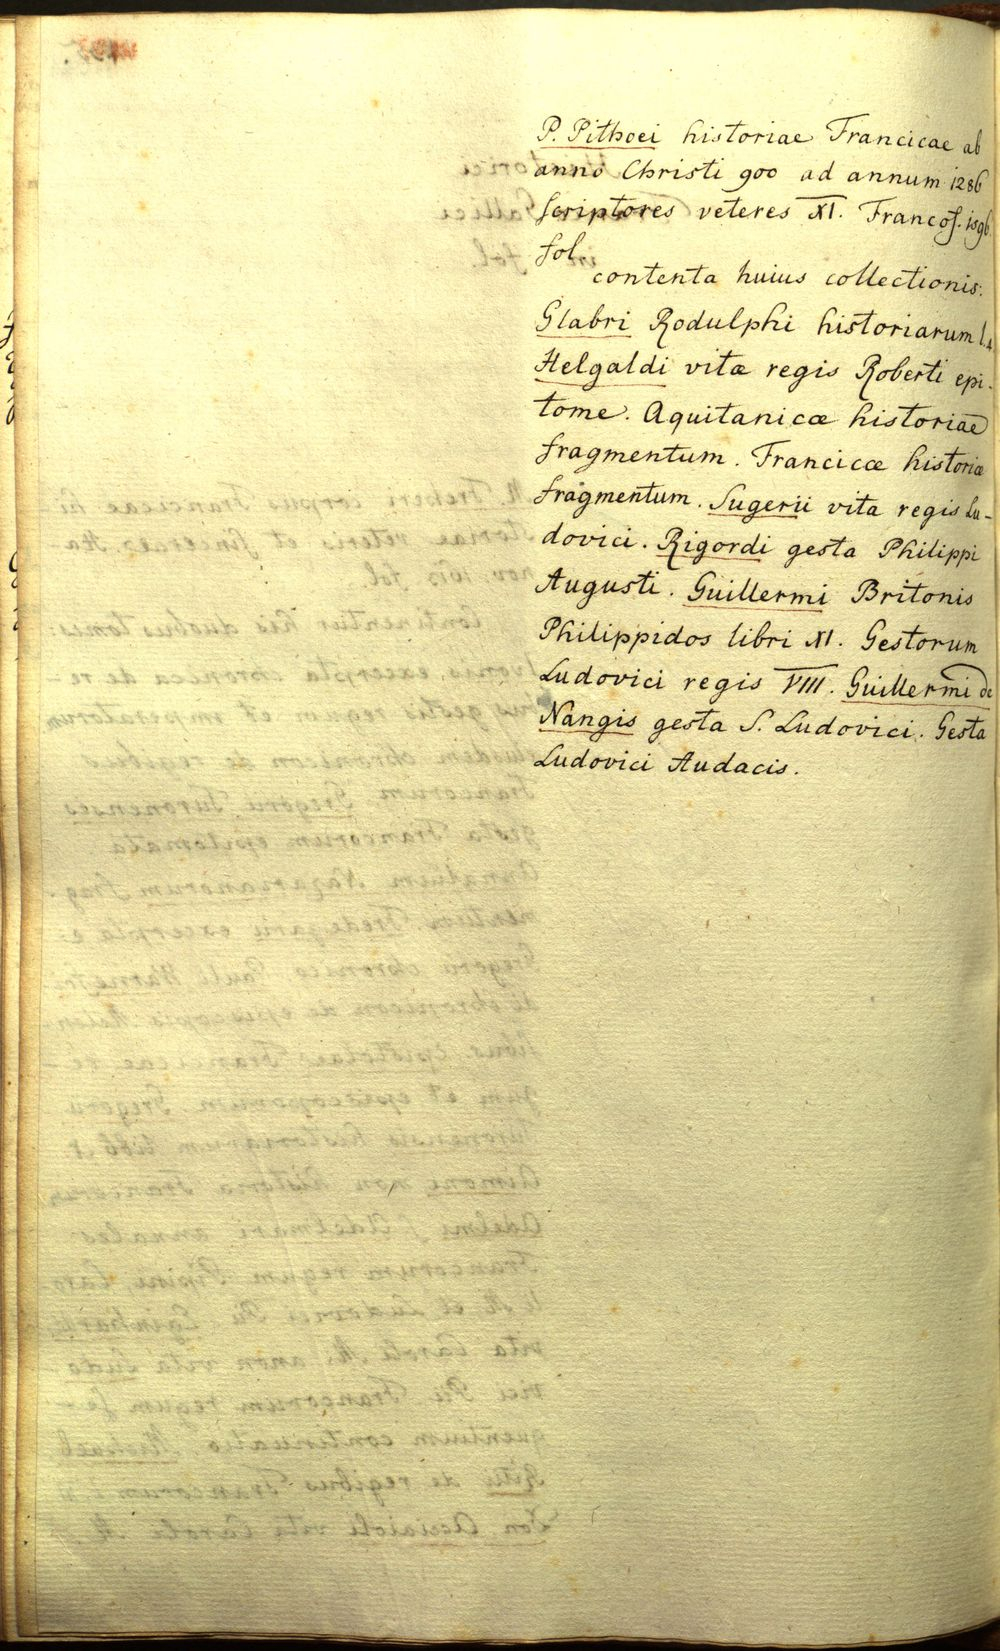 P. Pithoei historiae Francicae ab
anno Christi 900 ad annum 1286
scriptores veteres XI. Francof. 1596.
fol.
contenta huius collectionis:
Glabri Rodulphi historiarum l. 4.
Helgaldi vitæ regis Roberti epi-
tome. Aquitanicæ historiae
fragmentum. Francicæ historiæ
fragmentum. Sugerii vita regis Lu-
dovici. Rigordi gesta Philippi
Augusti. Guillermi Britonis
Philippidos libri XI. Gestorum
Ludovici regis VIII. Guillermi de
Nangis gesta S. Ludovici. Gesta
Ludovici Audacis.